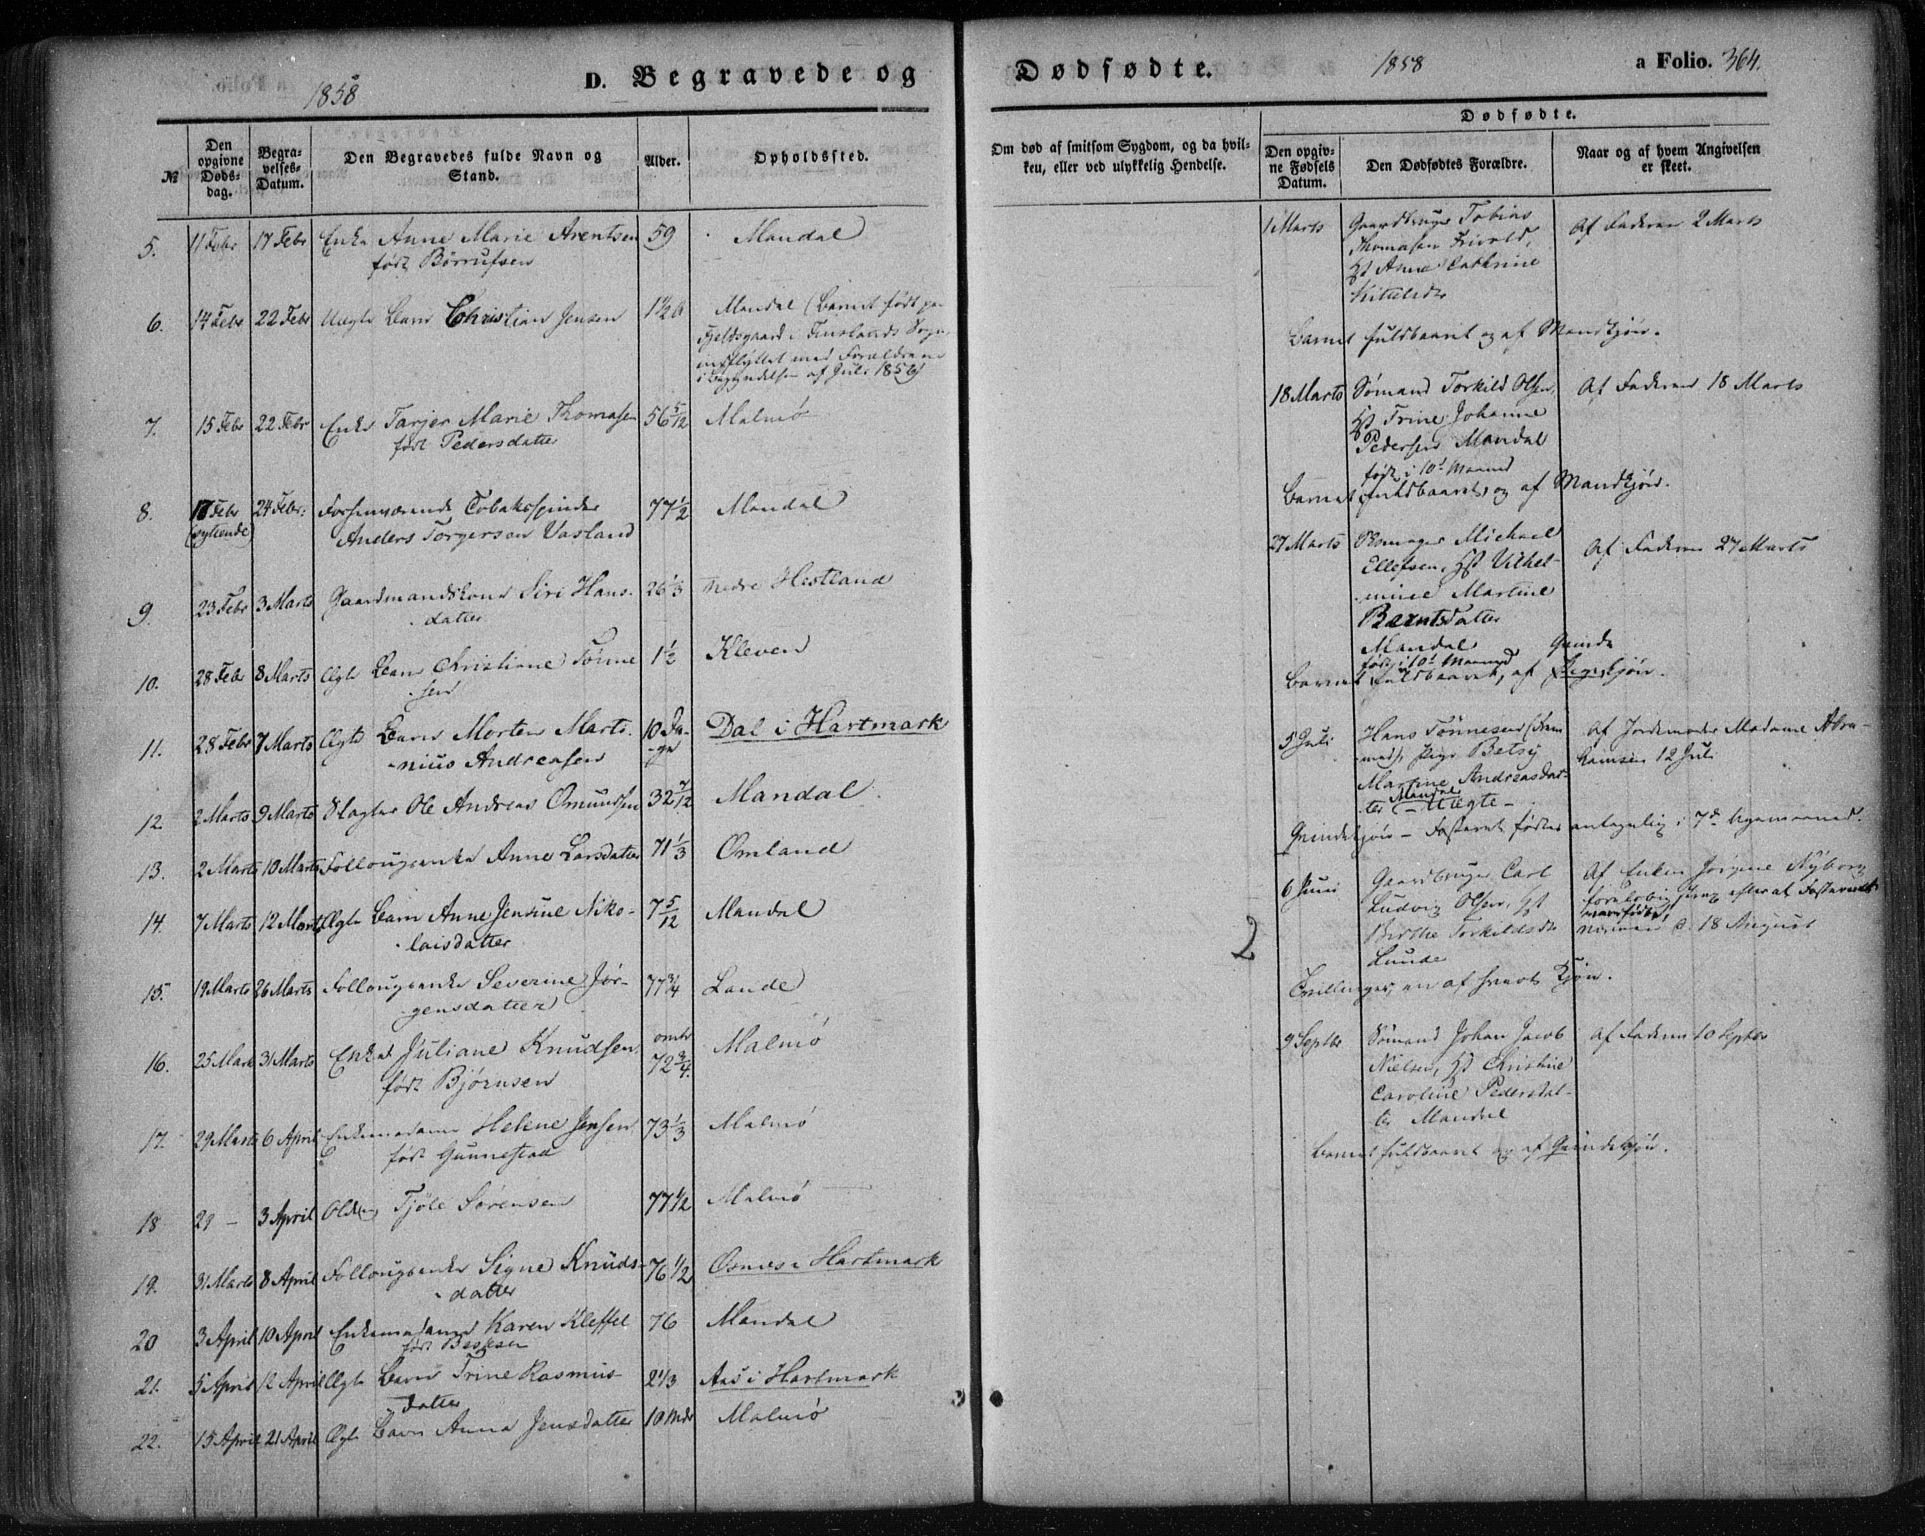 1858
D. Begravede og
№
Den opgivne Døds-dag.
Begra-velses-Datum.
Den Begravedes fulde Navn og Stand.
Alder.
Opholdssted.
5. 11 Febr 17 Febr Enke Anne Marie Arentsen 59 Mandal
født Börrufsen
6. 14 Febr 22 Febr Uægte Barn Christian Jensen 1½ A Mandal (Barnet født paa
Fjeldsgaard i Finslands Sogn,
indflyttet med Forældrene
i Begyndelsen af Juli 1856)
7. 15 Febr 22 Febr Enke Tarjer Marie Thomasen 56 5/12 Malmø
født Pedersdatter
8. 17 Febr 24 Febr: Forhenværende Tobaksspinder 77½ Mandal
(syttende) Anders Torgersen Vasland
9. 23 Febr 3 Marts Gaardmandskone Siri Hans- 26⅓ nedre Hestland
datter
10. 28 Febr 8 Marts Ægte Barn Christiane Tönne- 1½ Kleven
sen
11. 28 Febr 7 Marts Ægte Barn Morten Marti- 10 Da- Dal i Hartmark
nius Andreasen ge
12. 2 Marts 9 Marts Slagter Ole Andreas Omundsen 32 7/12 Mandal
13. 2 Marts 10 Marts Follougsenke Anne Larsdatter 71⅓ Omland
14. 7 Marts 12 Marts Ægte Barn Anne Jensine Niko- 7 5/12 Mandal
laisdatter
15. 19 Marts 26 Marts Follougsenke Severine Jör- 77¾ Lande
gensdatter
16. 25 Marts 31 Marts Enken Juliane Knudsen omtr 72¾ Malmö
født Bjørnsen
17. 29 Marts 6 April Enkemadame Helene Jensen 73⅓ Malmö
født Gunnestad
18 29 — 3 April Olding Tjöle Sörensen 77½ Malmö
19. 31 Marts 8 April Follougsenke Signe Knuds- 76½ Osnes i Hartmark
datter
20 3 April 10 April Enkemadame Karen Kleffel 76 Mandal
født
21. 5 April 12 April Ægte Barn Trine Rasmus- 2⅓ Aas i Hartmark
datter
22. 15 April 21 April Ægte Barn Anna Jensdatter 10 Mdr Malmö
Dødfødte.
1858
a Folio. 364.
Om død af smitsom Sygdom, og da hvil-
ken, eller ved ulykkelig Hendelse.
Dødfødte.
Den opgiv-ne Fødsels Datum.
Den Dødfødtes Forældre.
Naar og af hvem Angivelsen er skeet.
1 Marts Gaardbruger Tobias Af Faderen 2 Marts
Thomasen Frivold,
Hst Anne Cathrine
Kittelsdtr
Barnet fuldbaaret og af Mandkjön.
18 Marts Sømand Torkild Olsen, Af Faderen 18 Marts
Hst Trine Johanne
Pedersen Mandal
født i 10d Maaned
Barnet fuldbaaret, og af Mandkjön.
27 Marts Skomager Michael Af Faderen 27 Marts
Ellefsen, Hst Vilhel-
mine Martine
Berntsdatter
Mandal
født i 10d Maaned Qvinde
Barnet fuldbaaret, af Pigekjön.
5 Juli Hans Tönnesen Af Jordemoder Madame Abra-
Pige Betsy hamsen 12 Juli
Martine Andreasdat-
ter Mandal — Uægte —
Qvindekjön — Fosteret födtes antagelig i 7de Svangerskabsmaaned.
6 Juni Gaardbruger Carl Af Enken Jørgine Nyborg
Ludvig Olsen, Hst
Berthe Torkildsdtr 18 August
Lunde
2
Tvillinger, en af hvert Kjön.
9 Septbr Sømand Johan Jacob Af Faderen 10 Septbr
Nielsen, Hst Christine
Caroline Pedersdat-
ter Mandal
Barnet fuldbaaret og af Qvindekjön.